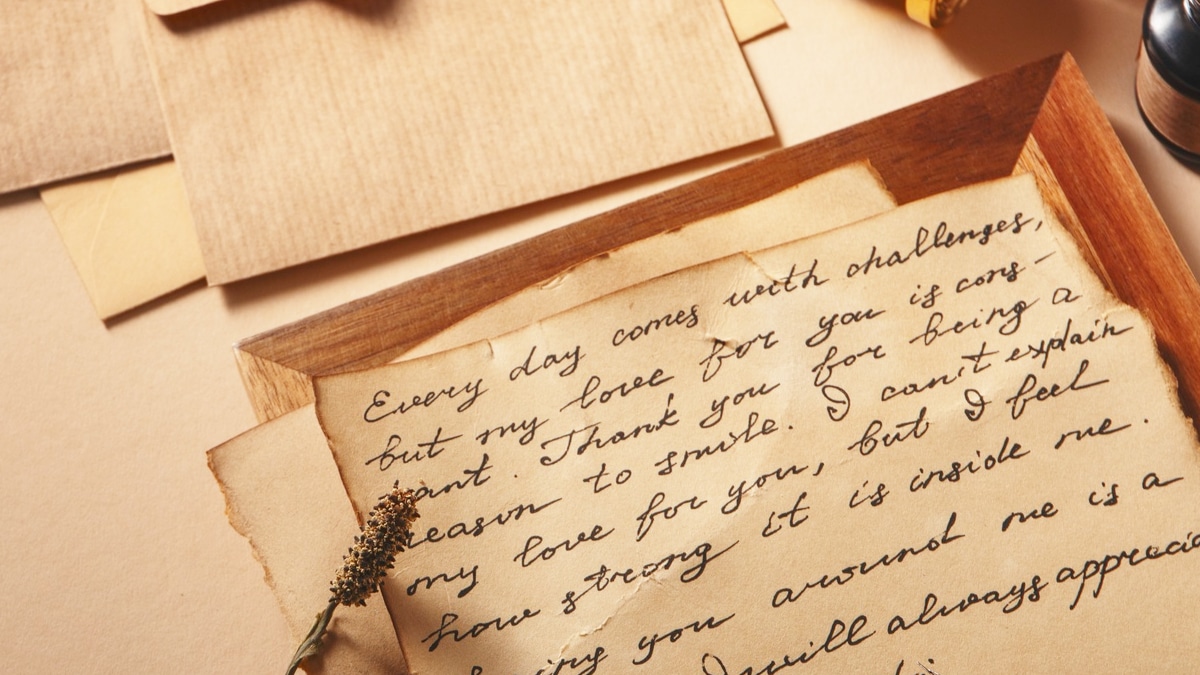 Every day comes with challenges,
but my love for you is cons-
ant. Thank you for being a
reason to smile. I can't explain
my love for you, but I feel
how strong it is inside me.
you around me is a
I will always